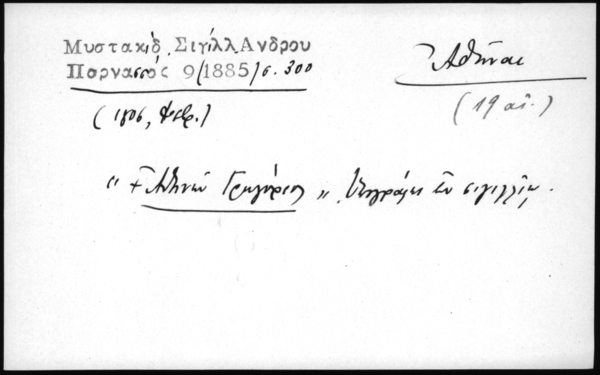 Μυστακίδ. Σιγίλλ Ανδρου
Παρνασσός 9/1885/σ. 300
Ἀθῆναι
(19 αἰ.)
(1806, Φεβρ.)
" † Ἀθηνῶν Γρηγόριος " ὑπογράφει ἐν σιγιλλίῳ.